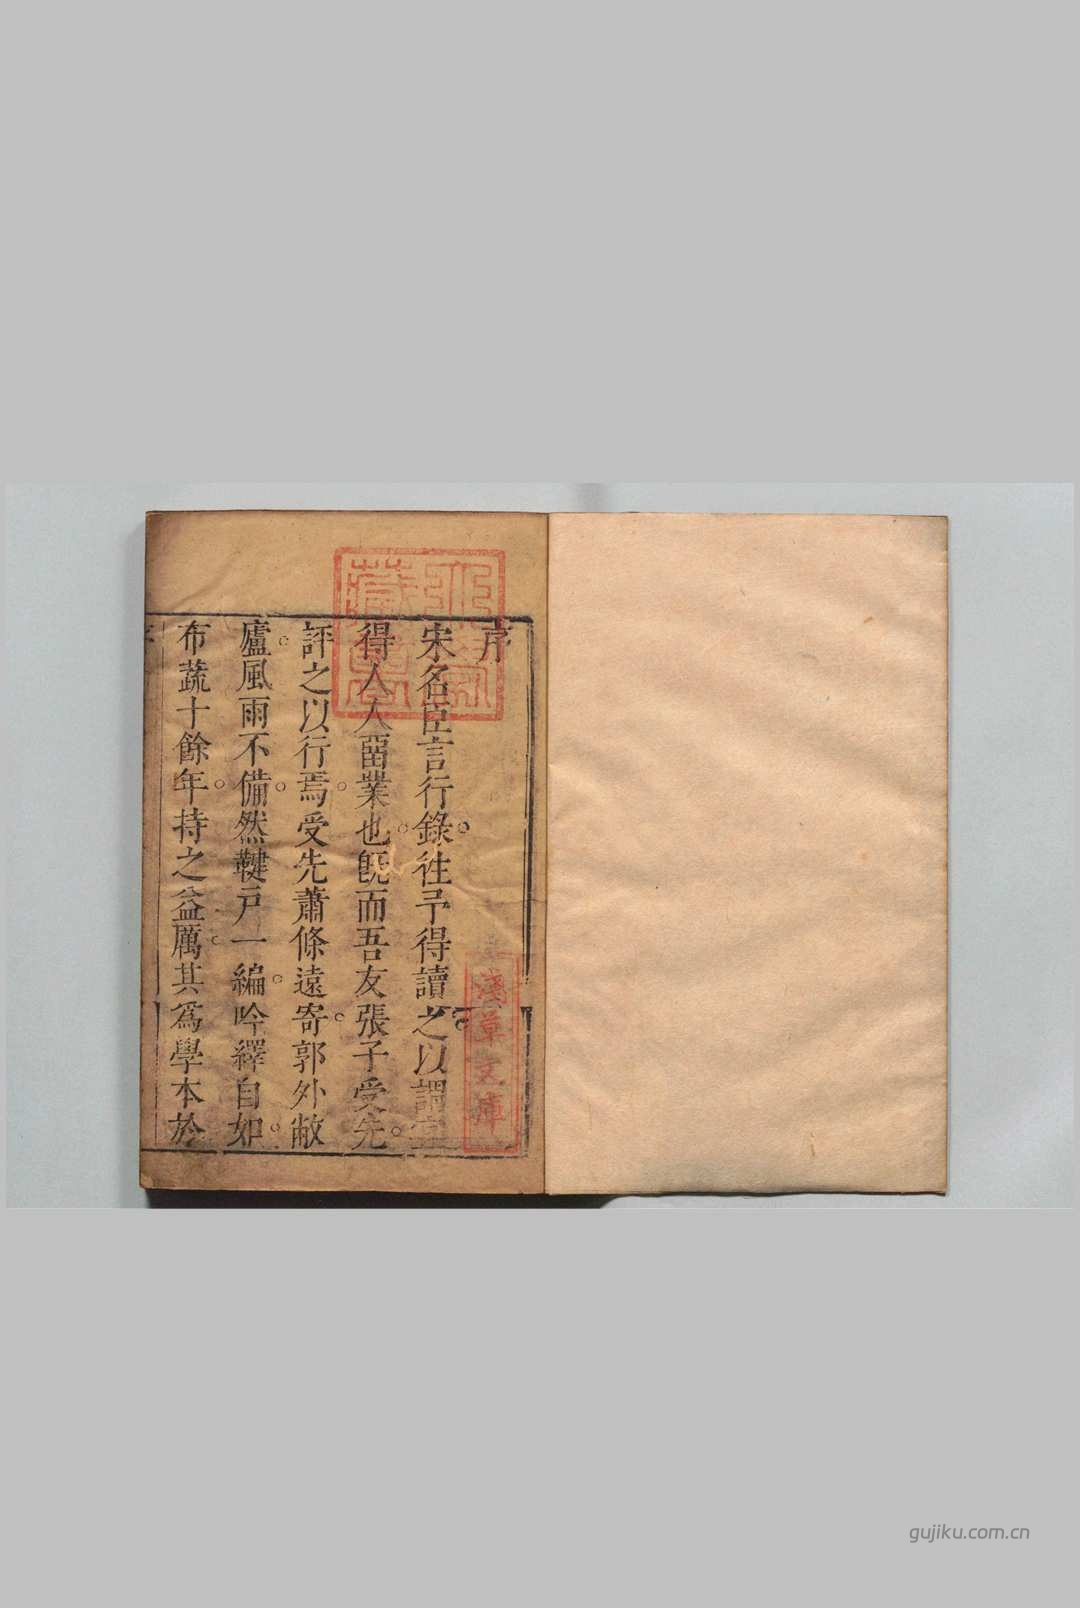 序
宋名臣言行錄往予得讀之以謂宜
得人人畱業也旣而吾友張子受先
評之以行焉受先蕭條遠寄郭外敝
廬風雨不備然鞬戸一編吟繹自如
布蔬十餘年持之益厲其爲學本於
淺草文庫
gujiku.com.cn